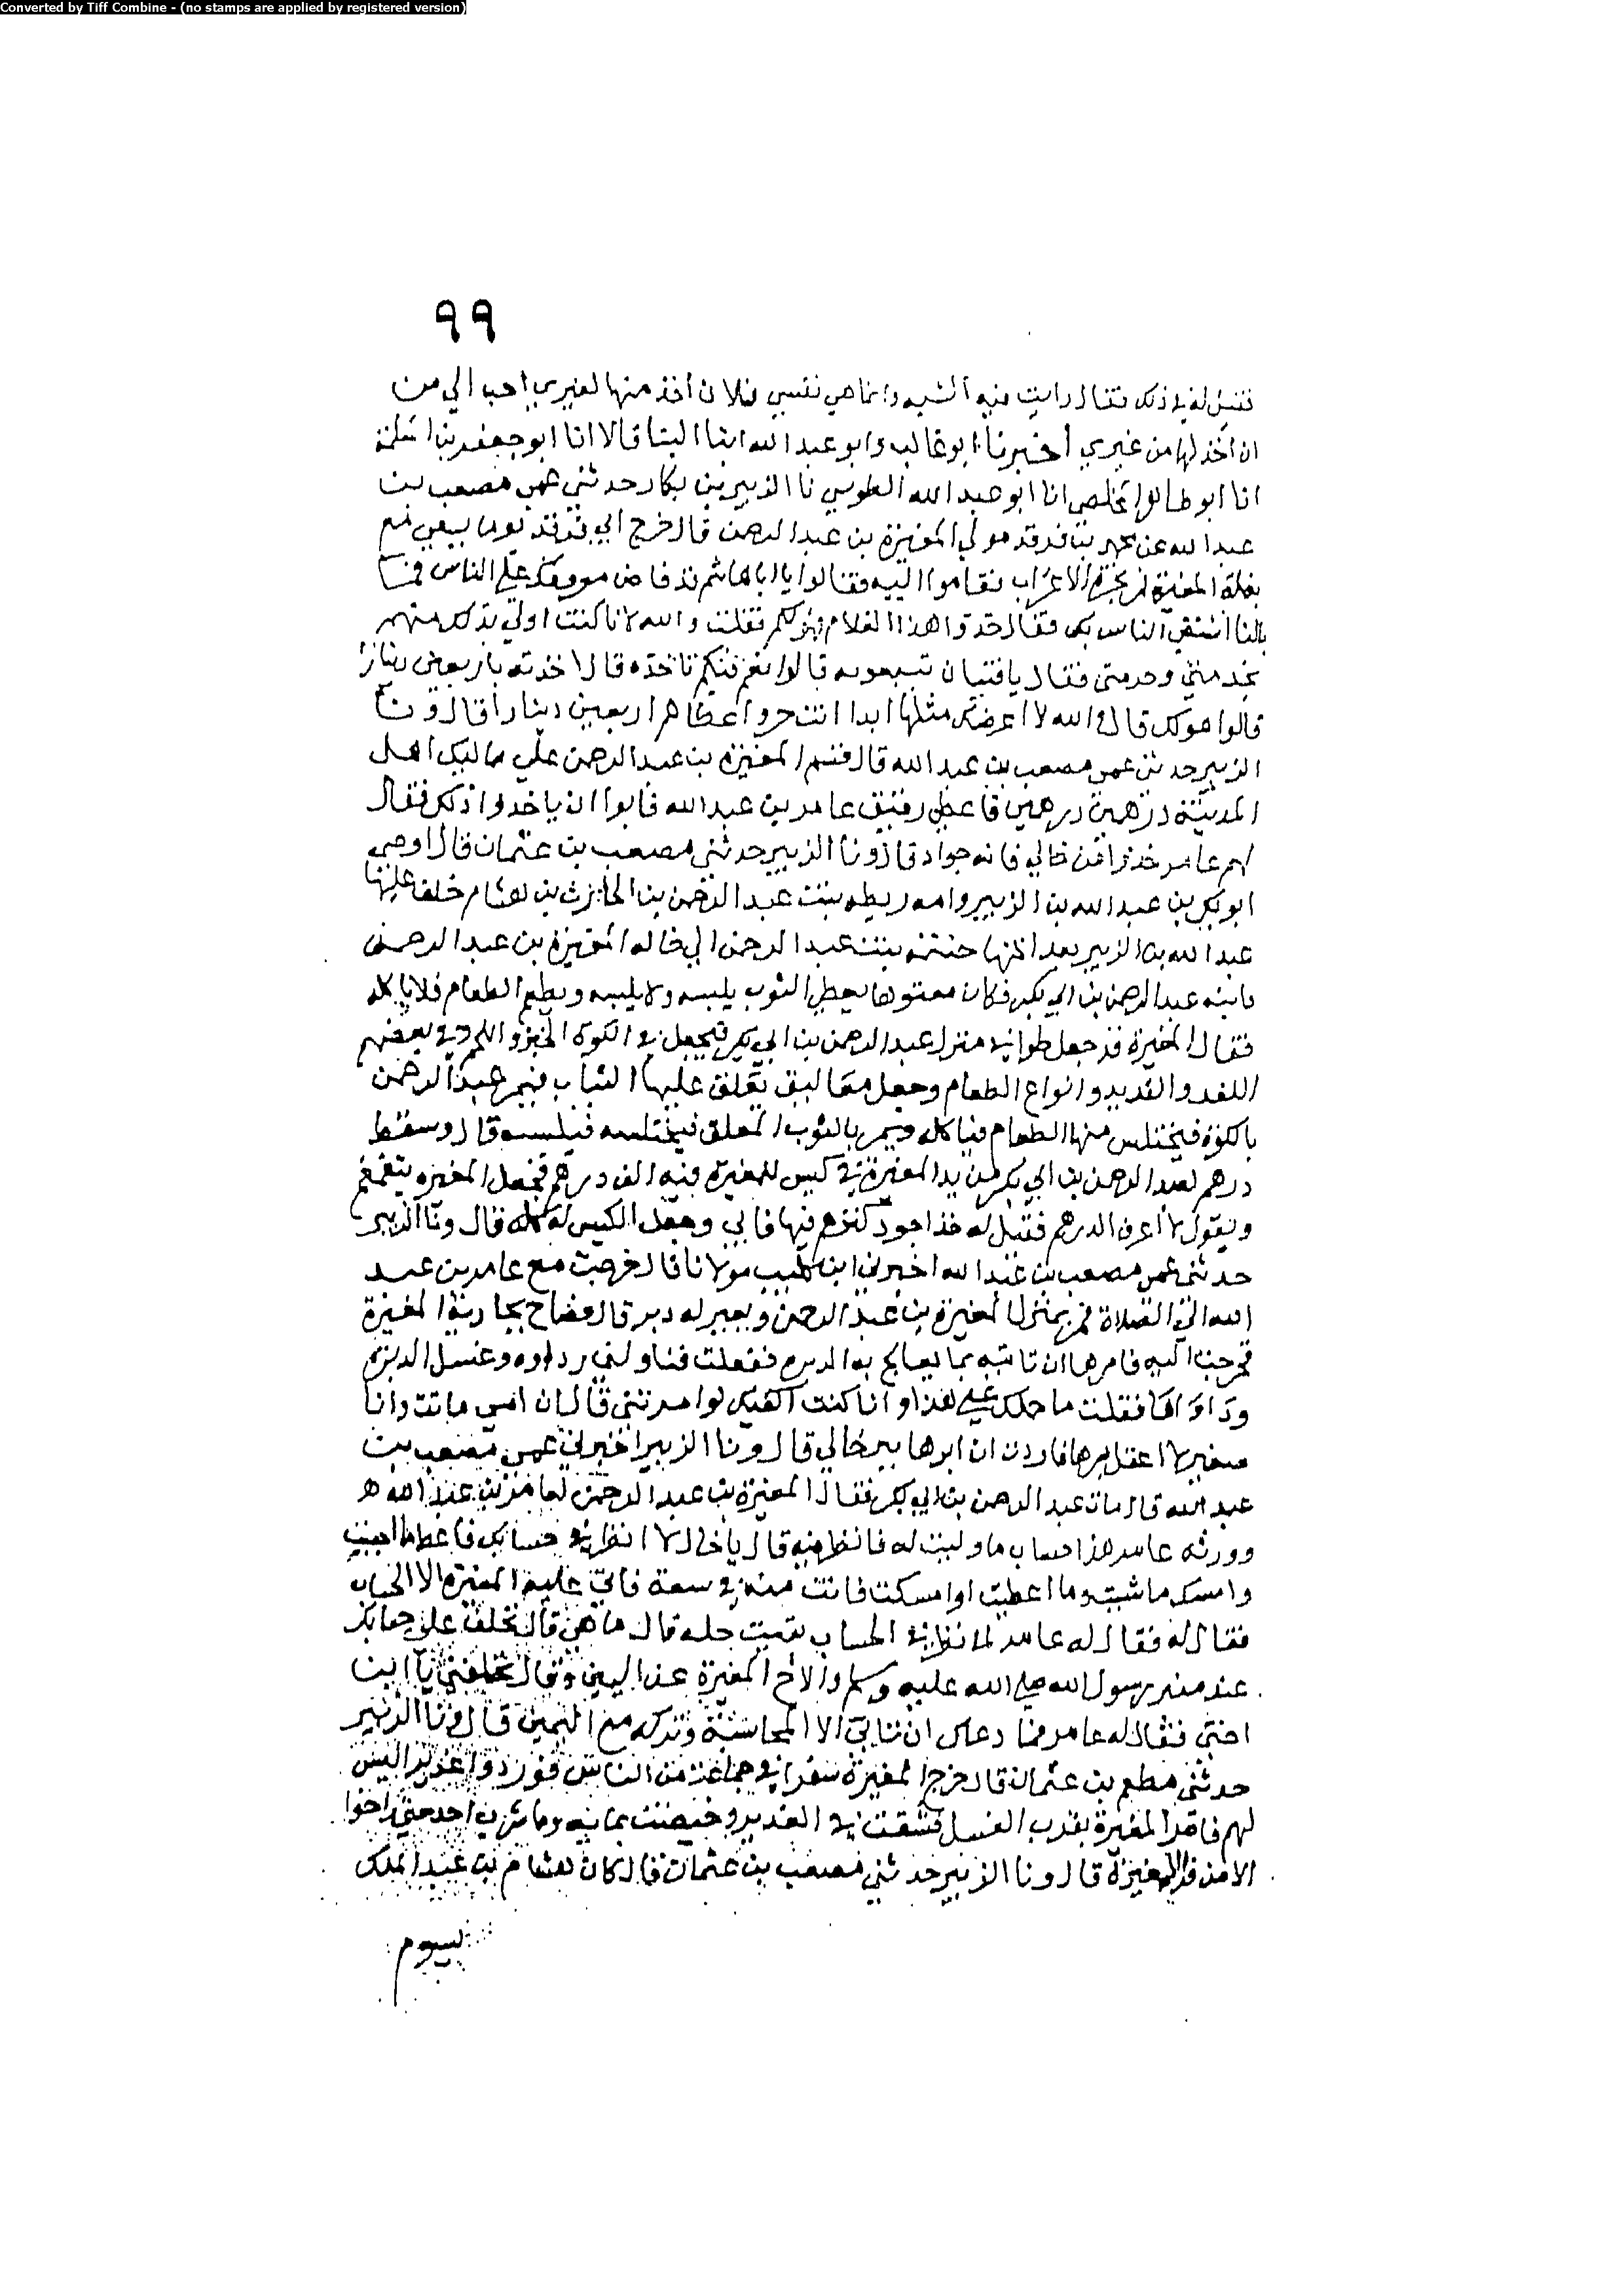 Converted by Tiff Combine - (no stamps are applied by registered version)
٩٩
فقيل له في ذلك فقال رايت فيه الشبه وانما هي نفسي فلان اخذ منها لغيري احب الي من
ان اخذ لها من غيري أخبرنا ابو غالب وابو عبد الله ابنا البنا قالا انا ابو جعفر بن المسلمة
انا ابو طاهر المخلص انا ابو عبد الله الطوسي نا الزبير بن بكار حدثني عمي مصعب بن
عبد الله عن بن فرقد مولي المغيرة بن عبد الرحمن قال خرج ابي
بغلة المغيرة الاعراب فقاموا اليه فقالوا يا ابا هاشم قد فاض معروفك علي الناس فما
بالنا اشقي الناس بك فقال خذوا هذا الغلام فهو لكم فقلت والله لانا كنت اولي بذلك منهم
بخدمتي وحرمتي فقال يا فتيان تبيعونه قالوا نعم فبكم تاخذه قال اخذته باربعين دينارا
قالوا هو لك قال والله لا اعرضك مثلها ابدا انت حر واعطاهم اربعين دينارا قال ونا
الزبير حدثني عمي مصعب بن عبد الله قال قسم المغيرة بن عبد الرحمن علي مماليك اهل
المدينة درهمين درهمين فاعطي رقيق عامر بن عبد الله فابوا ان ياخذوا ذلك فقال
لهم عامر خذوا من خالي فانه جواد قال ونا الزبير حدثني مصعب بن عثمان قال اوصي
ابو بكر بن عبد الله بن الزبير وامه ريطه بنت عبد الرحمن بن الحارث بن هشام خلف عليها
عبد الله بن الزبير بعد اختها حنتمة بنت عبد الرحمن الي خاله المغيرة بن عبد الرحمن
بابنه عبد الرحمن بن ابي بكر فكان معتوها يعطي الثوب يلبسه ولا يلبسه ويطعم الطعام فلا ياكله
فقال المغيرة فد جعل طوا في منزل عبد الرحمن بن ابي بكر فيجعل في الكوة الخبز واللحم وفي بعضهم
اللغد والقديد وانواع الطعام وجعل معاليق يعلق عليها الثياب فيمر عبد الرحمن
بالكوة فيختلس منها الطعام فياكله ويمر بالثوب المعلق فيختلسه فيلبسه قال وسقط
درهم لعبد الرحمن بن ابي بكر من يد المغيرة في كيس للمغيرة فيه الف درهم فجعل المغيرة
ويقول لا اعرف الدرهم فقيل له خذ اجود كنزهم فيها فابي وجعل الكيس له كله قال ونا الزبير
حدثني عمي مصعب بن عبد الله اخبرني ابن كليب مولانا قال خرجت مع عامر بن عبد
الله الي الصلاة فمر بمنزل المغيرة بن عبد الرحمن وبعير له دبر قال فصاح بجارية المغيرة
فخرجت اليه فامرها ان تاتيه بما يعالج به الدبره ففعلت فناولني رداوه وغسل الدبرة
وداواها فقلت ما حملك علي هذا وانا كنت اكفيك لو امرتني قال ان امي ماتت وانا
صغير لا اعقل برها فاردت ان ابرها ببر خالي قال ونا الزبير اخبرني عمي مصعب بن
عبد الله قال مات عبد الرحمن بن ابي بكر فقال المغيرة بن عبد الرحمن لعامر بن عبد الله هـ
وورثه عامر هذا حساب ما وليت له فانظر فيه قال يا خال لا انظر في حسابك فاعط ما احببت
وامسك ما شيت وما اعطيت او امسكت فانت منه في سعة فابي عليه المغيرة الا الحساب
فقال له فقال له عامر لما نظر في الحساب بقيت خله قال ما هي قال تحلف علي حسابك
عند منبر رسول الله صلي الله عليه وسلم والاح المغيرة عن اليمين وقال تحلفني يا ابن
اختي فقال له عامر فما دعاك ان تابي الا المحاسبة وتركه من اليمين قال ونا الزبير
حدثني مطعم بن عثمان قال خرج المغيرة سفرا في جماعة من الناس فوردوا غديرا ليس
لهم فامر المغيرة بقرب العسل فشقت في الغدير وخيضت بمائه وما شرب احد حتي راحوا
الا من المغيرة قال ونا الزبير حدثني مصعب بن عثمان قال كان هشام بن عبد الملك
يسوم